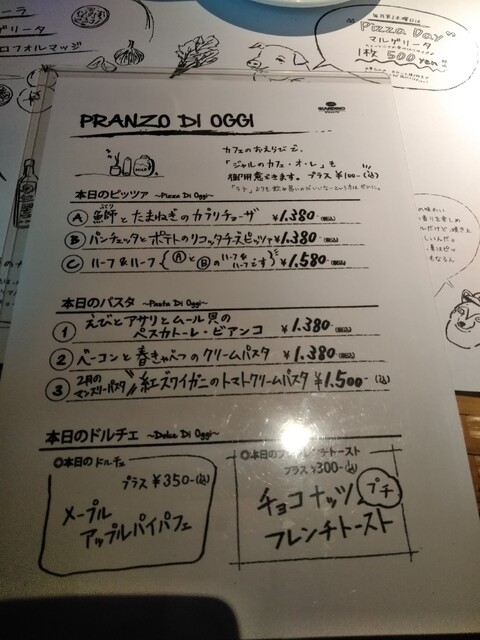 ーラ
リータ
ロフォルマッジ
"Pizza Day"
マルゲリータ
1枚 500yen
PRANZO DI OGGI
カフェのおえらびで、
「ジャルのカフェ・オ・レ」も
御用意できます。プラス ¥100-(込)
本日のピッツァ ~Pizza Di Oggi~
Ⓐ とたまねぎのカラリチョーザ ¥1.380-(税込)
Ⓑ パンチェッタとポテトのリコッタチーズピッツァ ¥1.380-(税込)
Ⓒ ハーフ&ハーフ {ⒶとⒷのハーフ&ハーフです} ¥1.580-(税込)
本日のパスタ ~Pasta Di Oggi~
① えびとアサリとムール貝の
ペスカトーレ・ビアンコ ¥1.380-(税込)
② ベーコンと春きゃべつのクリームパスタ ¥1.380-(税込)
③ 2月のマンスリーパスタ 紅ズワイガニのトマトクリームパスタ ¥1.500-(込)
本日のドルチェ ~Dolce Di Oggi~
◎本日のドルチェ
プラス ¥350-(込)
メープル
アップルパイパフェ
◎本日のフレンチトースト
プラス ¥300-(込)
チョコナッツ プチ
フレンチトースト